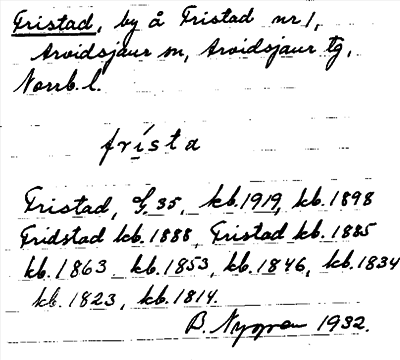 Fristad, by å Fristad nr 1,
Arvidsjaur sn, Arvidsjaur tg,
Norrb. l.
frísta
Fristad, G. 35, kb. 1919, kb. 1898
Fridstad kb. 1888, Fristad kb. 1885
kb. 1863, kb. 1853, kb. 1846, kb. 1834
kb. 1823, kb. 1814.
B. Nygren 1932.